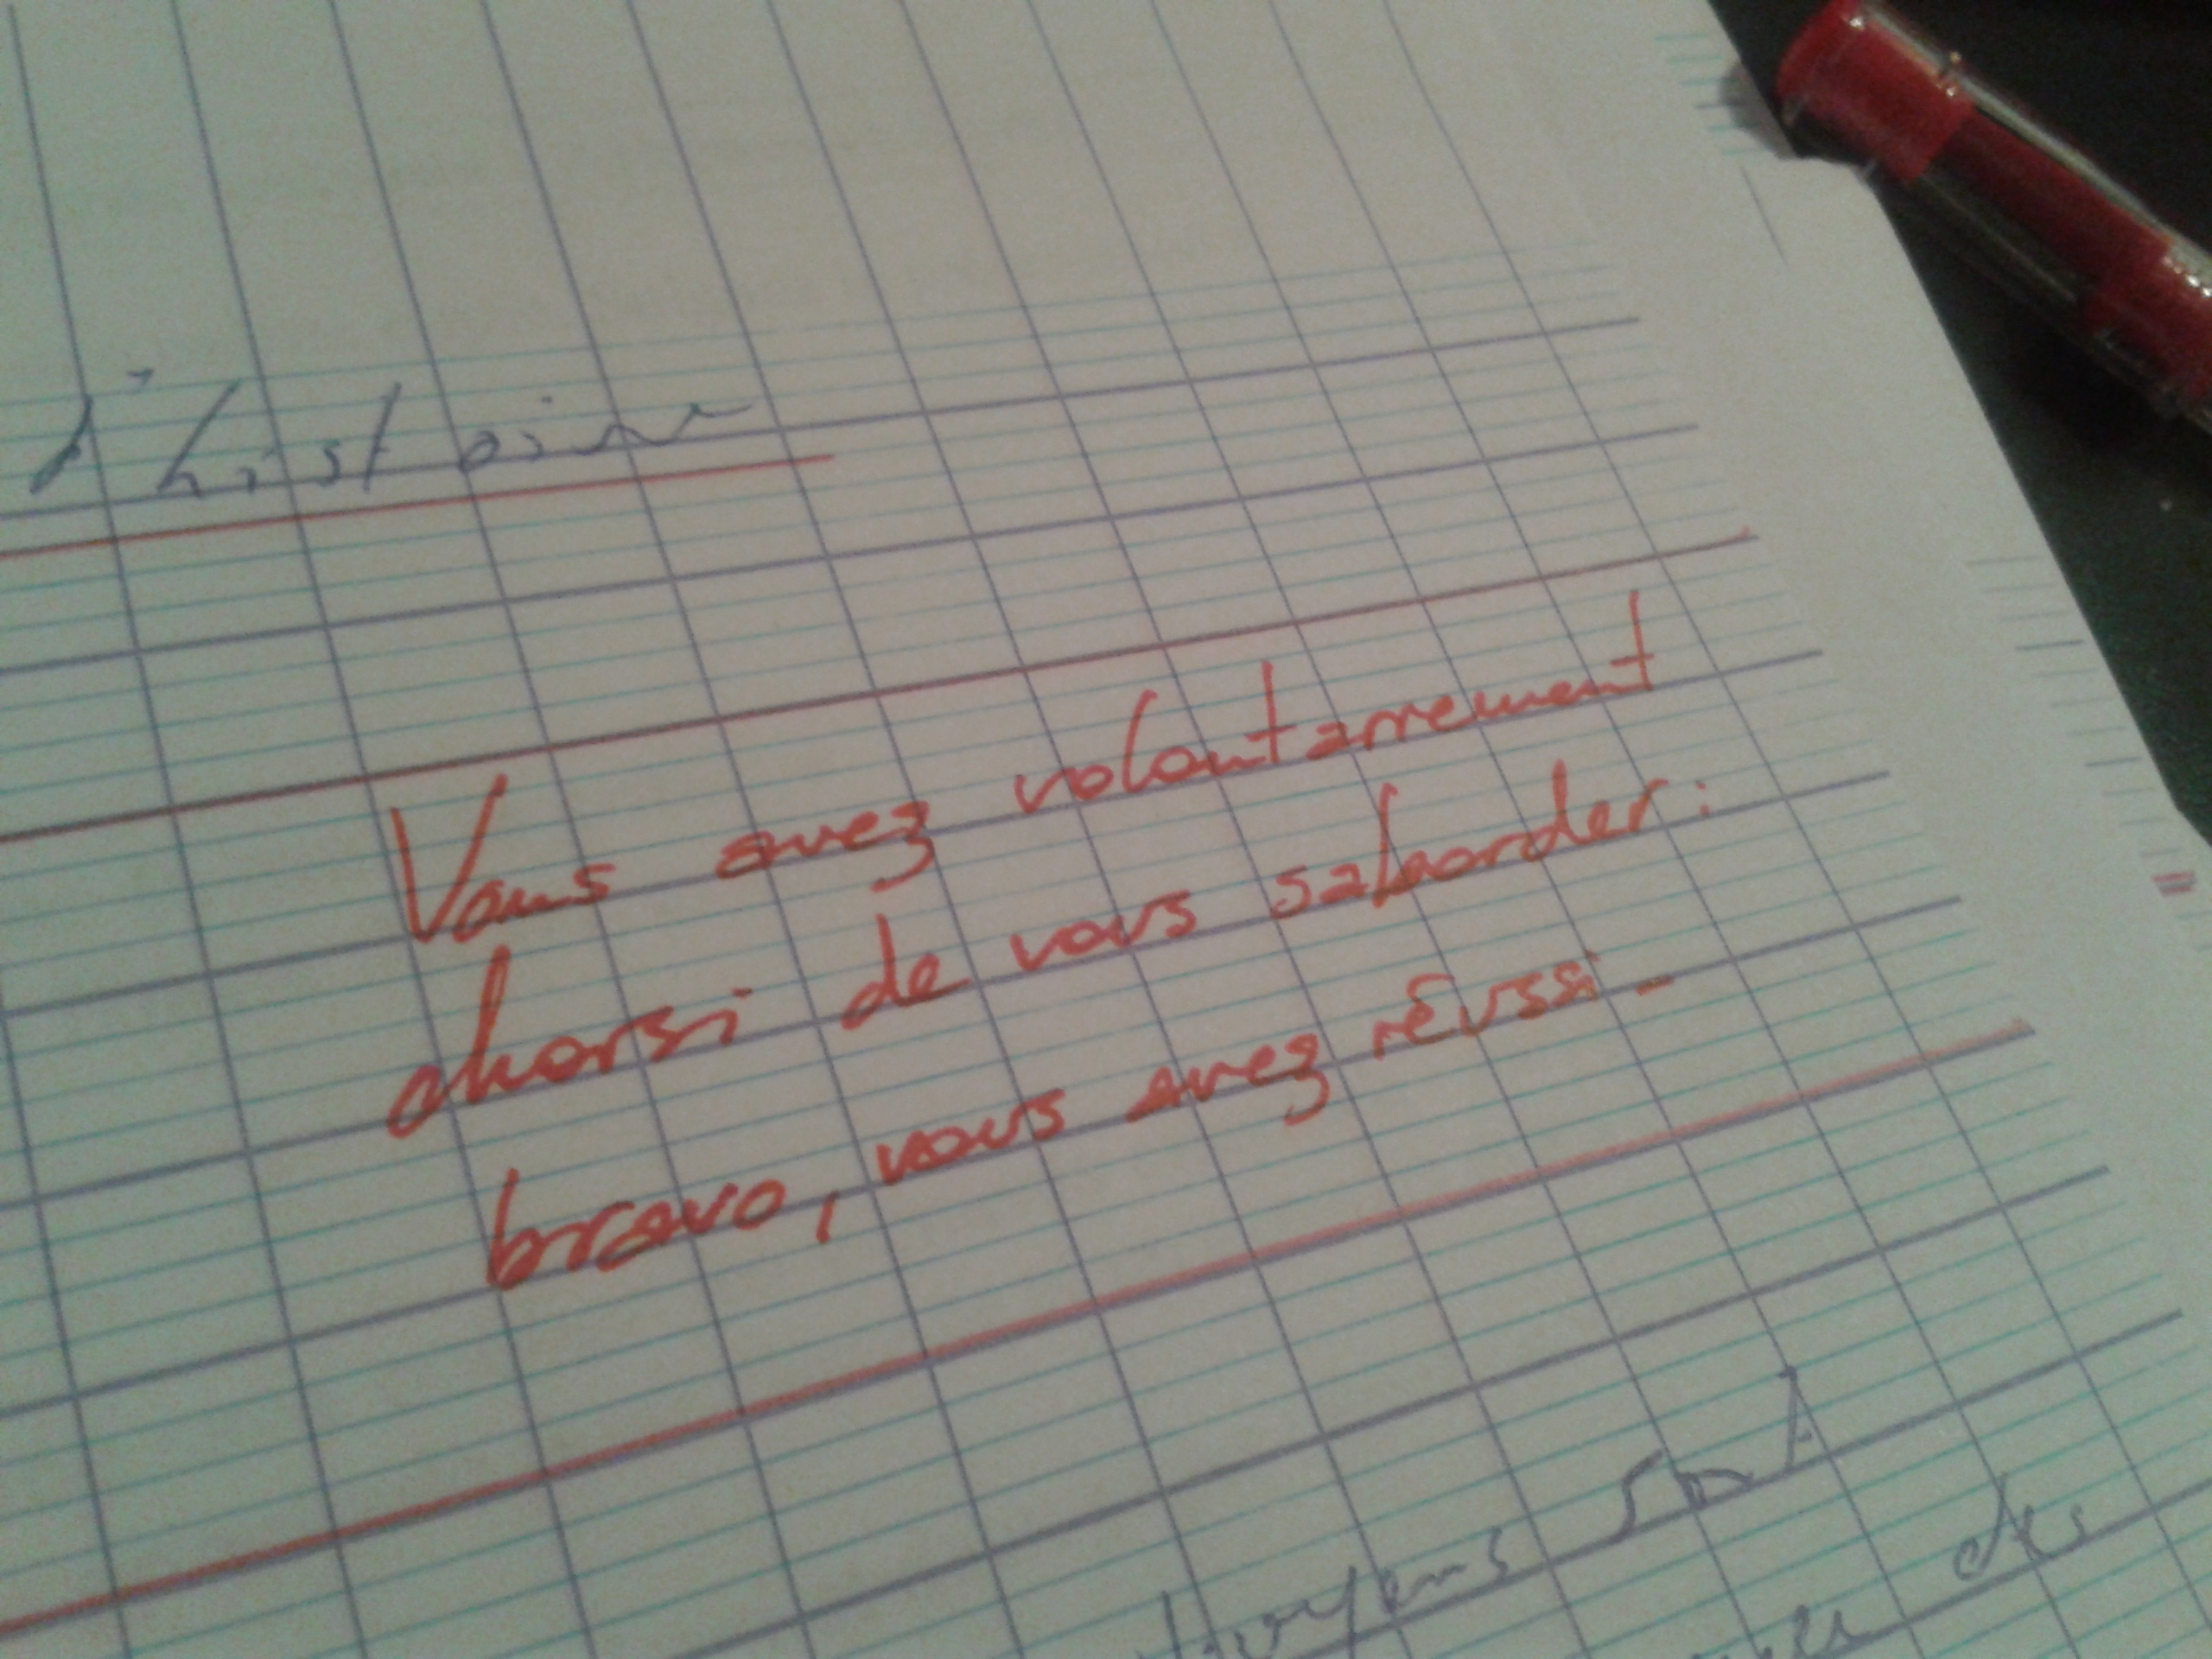 d'histoire
Vous avez volontairement
choisi de vous saborder :
bravo, vous avez réussi.
moyens sont
des